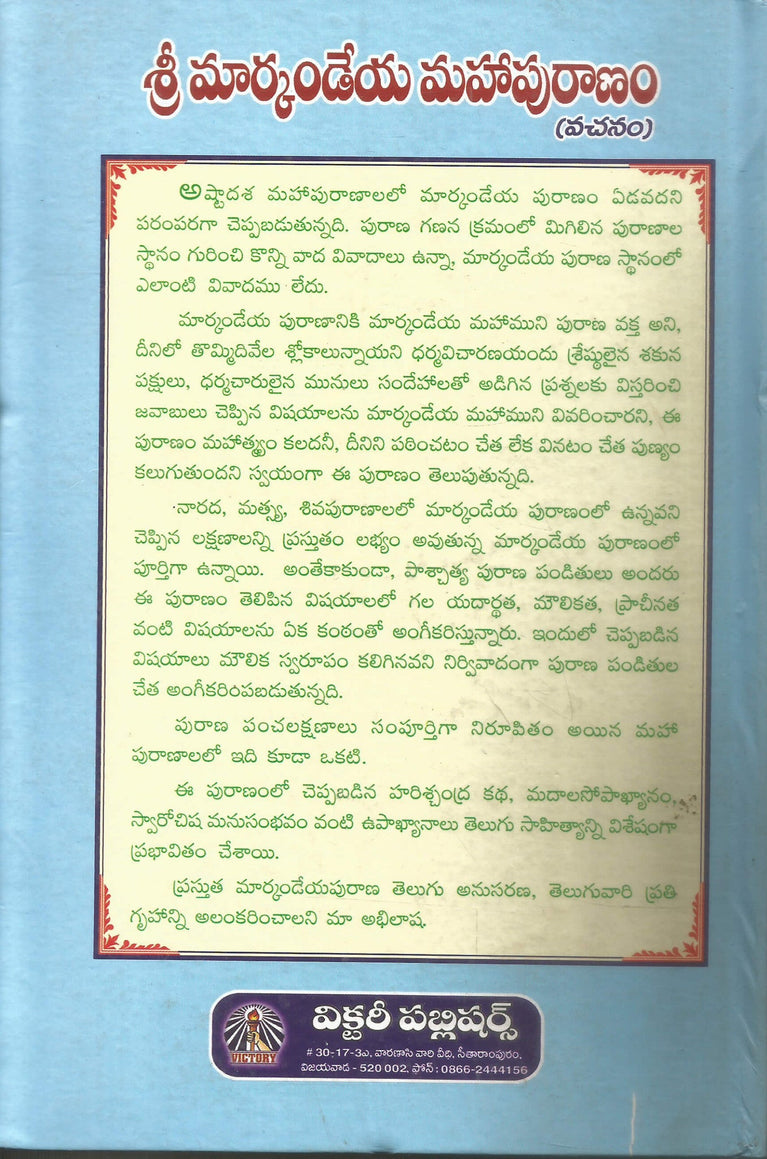 శ్రీ మార్కండేయ మహాపురాణం
(వచనం)
అష్టాదశ మహాపురాణాలలో మార్కండేయ పురాణం ఏడవదని
పరంపరగా చెప్పబడుతున్నది. పురాణ గణన క్రమంలో మిగిలిన పురాణాల
స్థానం గురించి కొన్ని వాద వివాదాలు ఉన్నా, మార్కండేయ పురాణ స్థానంలో
ఎలాంటి వివాదము లేదు.
మార్కండేయ పురాణానికి మార్కండేయ మహాముని పురాణ వక్త అని,
దీనిలో తొమ్మిదివేల శ్లోకాలున్నాయని ధర్మవిచారణయందు శ్రేష్ఠులైన శకున
పక్షులు, ధర్మచారులైన మునులు సందేహాలతో అడిగిన ప్రశ్నలకు విస్తరించి
జవాబులు చెప్పిన విషయాలను మార్కండేయ మహాముని వివరించారని, ఈ
పురాణం మహాత్మ్యం కలదనీ, దీనిని పఠించటం చేత లేక వినటం చేత పుణ్యం
కలుగుతుందని స్వయంగా ఈ పురాణం తెలుపుతున్నది.
నారద, మత్స్య, శివపురాణాలలో మార్కండేయ పురాణంలో ఉన్నవని
చెప్పిన లక్షణాలన్ని ప్రస్తుతం లభ్యం అవుతున్న మార్కండేయ పురాణంలో
పూర్తిగా ఉన్నాయి. అంతేకాకుండా, పాశ్చాత్య పురాణ పండితులు అందరు
ఈ పురాణం తెలిపిన విషయాలలో గల యదార్థత, మౌలికత, ప్రాచీనత
వంటి విషయాలను ఏక కంఠంతో అంగీకరిస్తున్నారు. ఇందులో చెప్పబడిన
విషయాలు మౌలిక స్వరూపం కలిగినవని నిర్వివాదంగా పురాణ పండితుల
చేత అంగీకరింపబడుతున్నది.
పురాణ పంచలక్షణాలు సంపూర్తిగా నిరూపితం అయిన మహా
పురాణాలలో ఇది కూడా ఒకటి.
ఈ పురాణంలో చెప్పబడిన హరిశ్చంద్ర కథ, మదాలసోపాఖ్యానం,
స్వారోచిష మనుసంభవం వంటి ఉపాఖ్యానాలు తెలుగు సాహిత్యాన్ని విశేషంగా
ప్రభావితం చేశాయి.
ప్రస్తుత మార్కండేయపురాణ తెలుగు అనుసరణ, తెలుగువారి ప్రతి
గృహాన్ని అలంకరించాలని మా అభిలాష.
విక్టరీ పబ్లిషర్స్
VICTORY
# 30-17-3ఎ, వారణాసి వారి వీధి, సీతారాంపురం,
విజయవాడ - 520 002, ఫోన్ : 0866-2444156